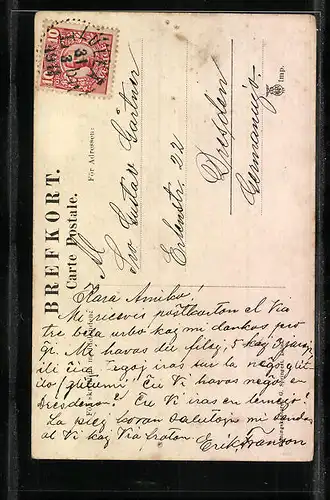 BREFKORT.
Carte Postale.
För Adressen:
M
Sro Gustav Gärtner
Erlenstr. 22
Dresden
Germanujo.
Imp.
Kara Amiko!
Mi ricevis postkarton el Via
tre bela urbo kaj mi dankas pro
ĝi. Mi havas du filoj, 5 kaj
ili ĉiu iras sur la neĝo
Ĉu Vi havas neĝo en
Dresdeno? Ĉu Vi iras en
La plej koran saluton mi sendas
al Vi kaj Via fraton.
Erik Franson